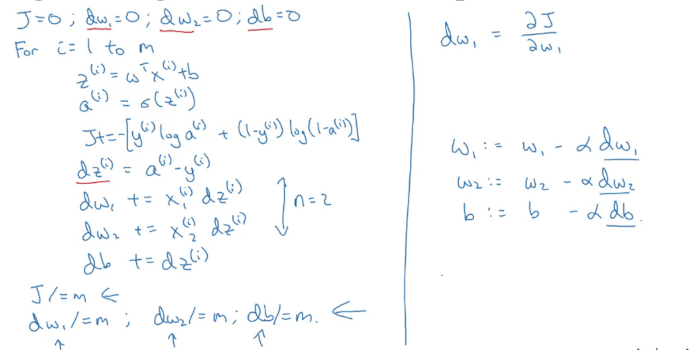 J=0 ; dw₁=0 ; dw₂=0 ; db=0
For i = 1 to m
z⁽ⁱ⁾ = wᵀx⁽ⁱ⁾+b
a⁽ⁱ⁾ = σ(z⁽ⁱ⁾)
J+= -[y⁽ⁱ⁾ log a⁽ⁱ⁾ + (1-y⁽ⁱ⁾) log(1-a⁽ⁱ⁾)]
dz⁽ⁱ⁾ = a⁽ⁱ⁾-y⁽ⁱ⁾
dw₁ += x₁⁽ⁱ⁾ dz⁽ⁱ⁾
dw₂ += x₂⁽ⁱ⁾ dz⁽ⁱ⁾
n=2
db += dz⁽ⁱ⁾
J /=m ←
dw₁ /=m ; dw₂ /=m ; db /=m. ←
↑ ↑ ↑
dw₁ = ∂J/∂w₁
w₁ := w₁ - α dw₁
w₂ := w₂ - α dw₂
b := b - α db.